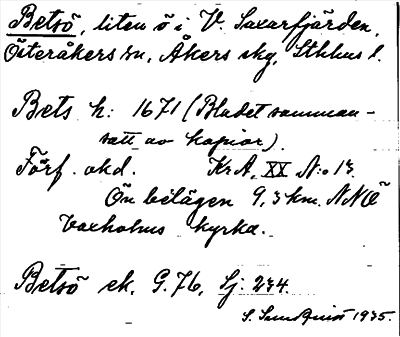 Betsö, liten ö i V. Saxarfjärden,
Österåkers sn, Åkers skg, Sthlms l.
Bets h: 1671 (Bladet samman-
satt av kopior).
Förf. okd. KrA, XX N:o 13.
Ön belägen 9,3 km. NNÖ
Vaxholms kyrka.
Betsö ek. G.76, Sj: 234.
S. Sundquist 1935.